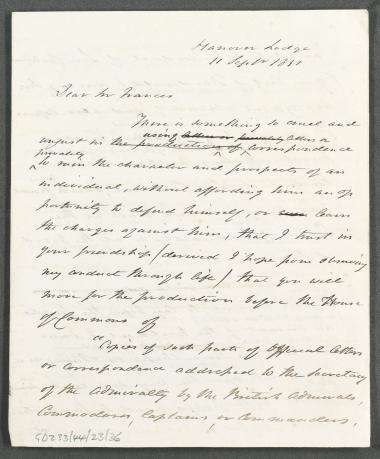 Hanover Lodge
11 Septr 1831
Dear Sir Francis
There is something so cruel and
using letters or privately letters or
unjust in the production of correspondence
privately
to ruin the character and prospects of an
individual, without affording him an op
portunity to defend himself, or learn
the charges against him, that I trust in
your friendship (derived I hope from observing
my conduct through life) that you will
move for the production before the House
of Commons of
"Copies of such parts of Official letters
or correspondence addressed to the Secretary
of the Admiralty by the British Admirals,
Commodores, Captains, or Commanders,
GD233/44/23/36